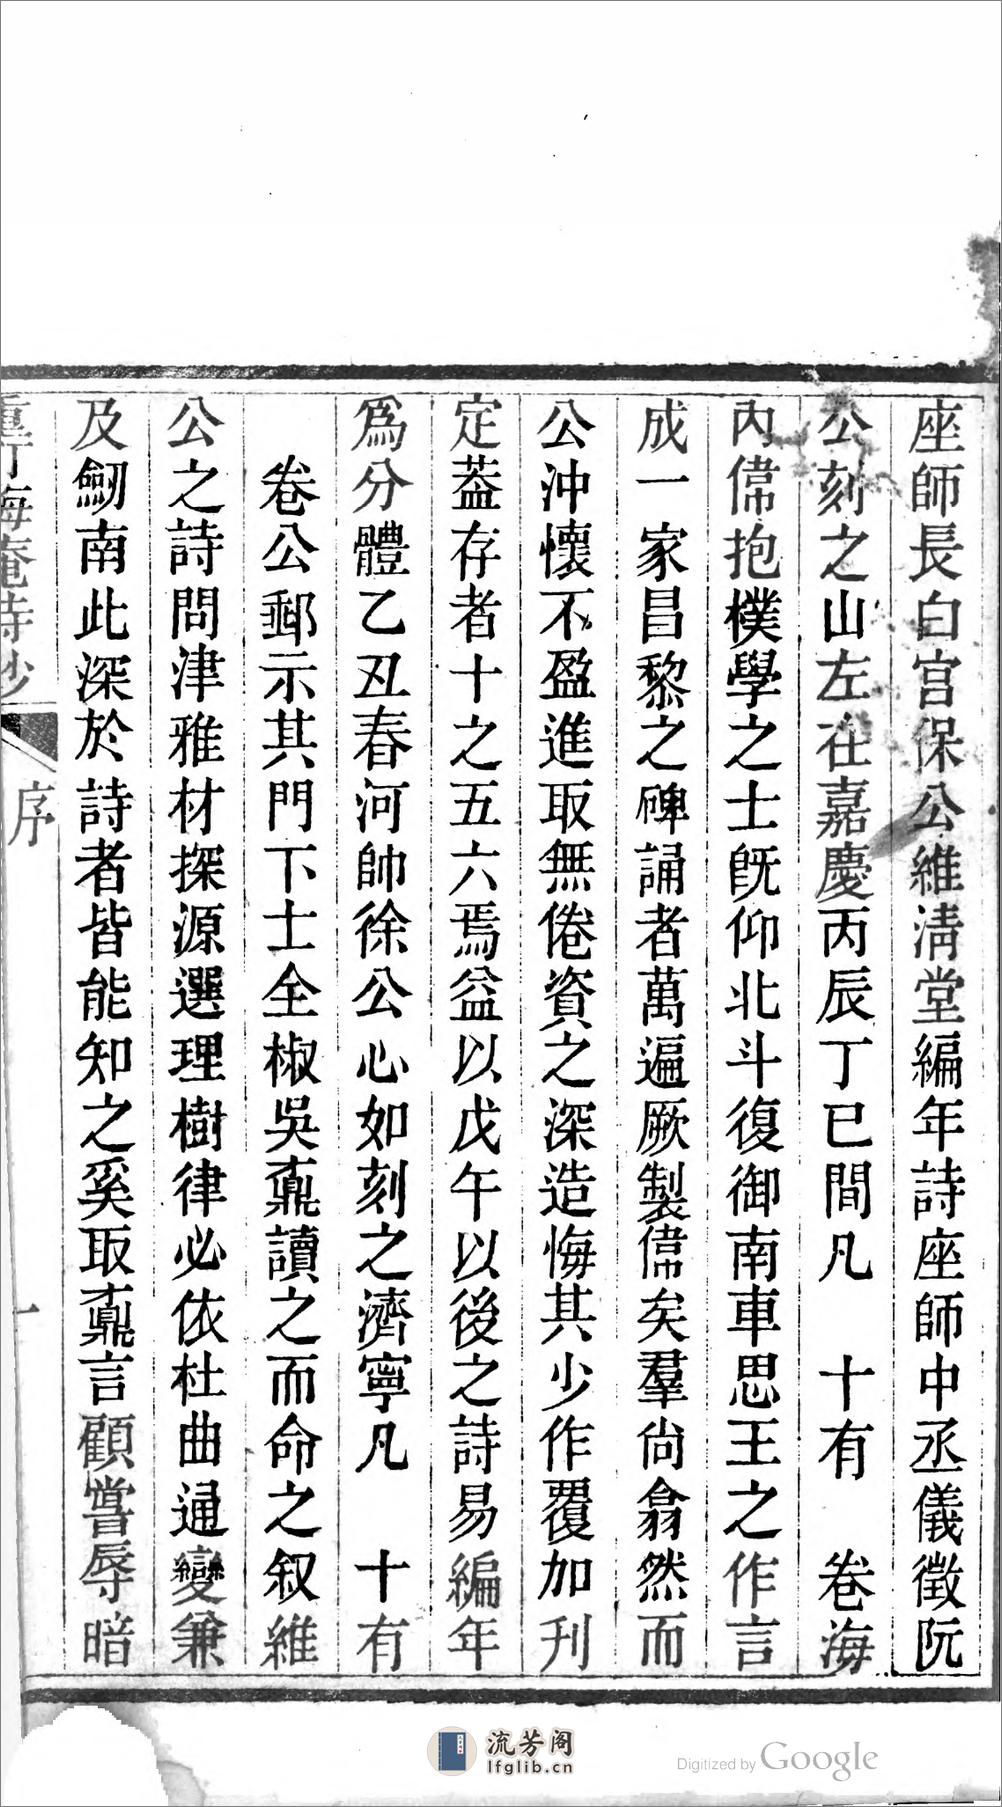 座師長白宮保公維淸堂編年詩座師中丞儀徵阮
公刻之山左在嘉慶丙辰丁巳間凡　十有　卷海
內偉抱樸學之士旣仰北斗復御南車思王之作言
成一家昌黎之碑誦者萬遍厥製偉矣羣尙翕然而
公沖懷不盈進取無倦資之深造悔其少作覆加刊
定葢存者十之五六焉益以戊午以後之詩易編年
爲分體乙丑春河帥徐公心如刻之濟寧凡　十有
　卷公郵示其門下士全椒吳鼒讀之而命之叙維
公之詩問津雅材探源選理樹律必依杜曲通變兼
及劒南此深於詩者皆能知之奚取鼒言顧嘗辱暗
序
一
流芳阁
lfglib.cn
Digitized by Google